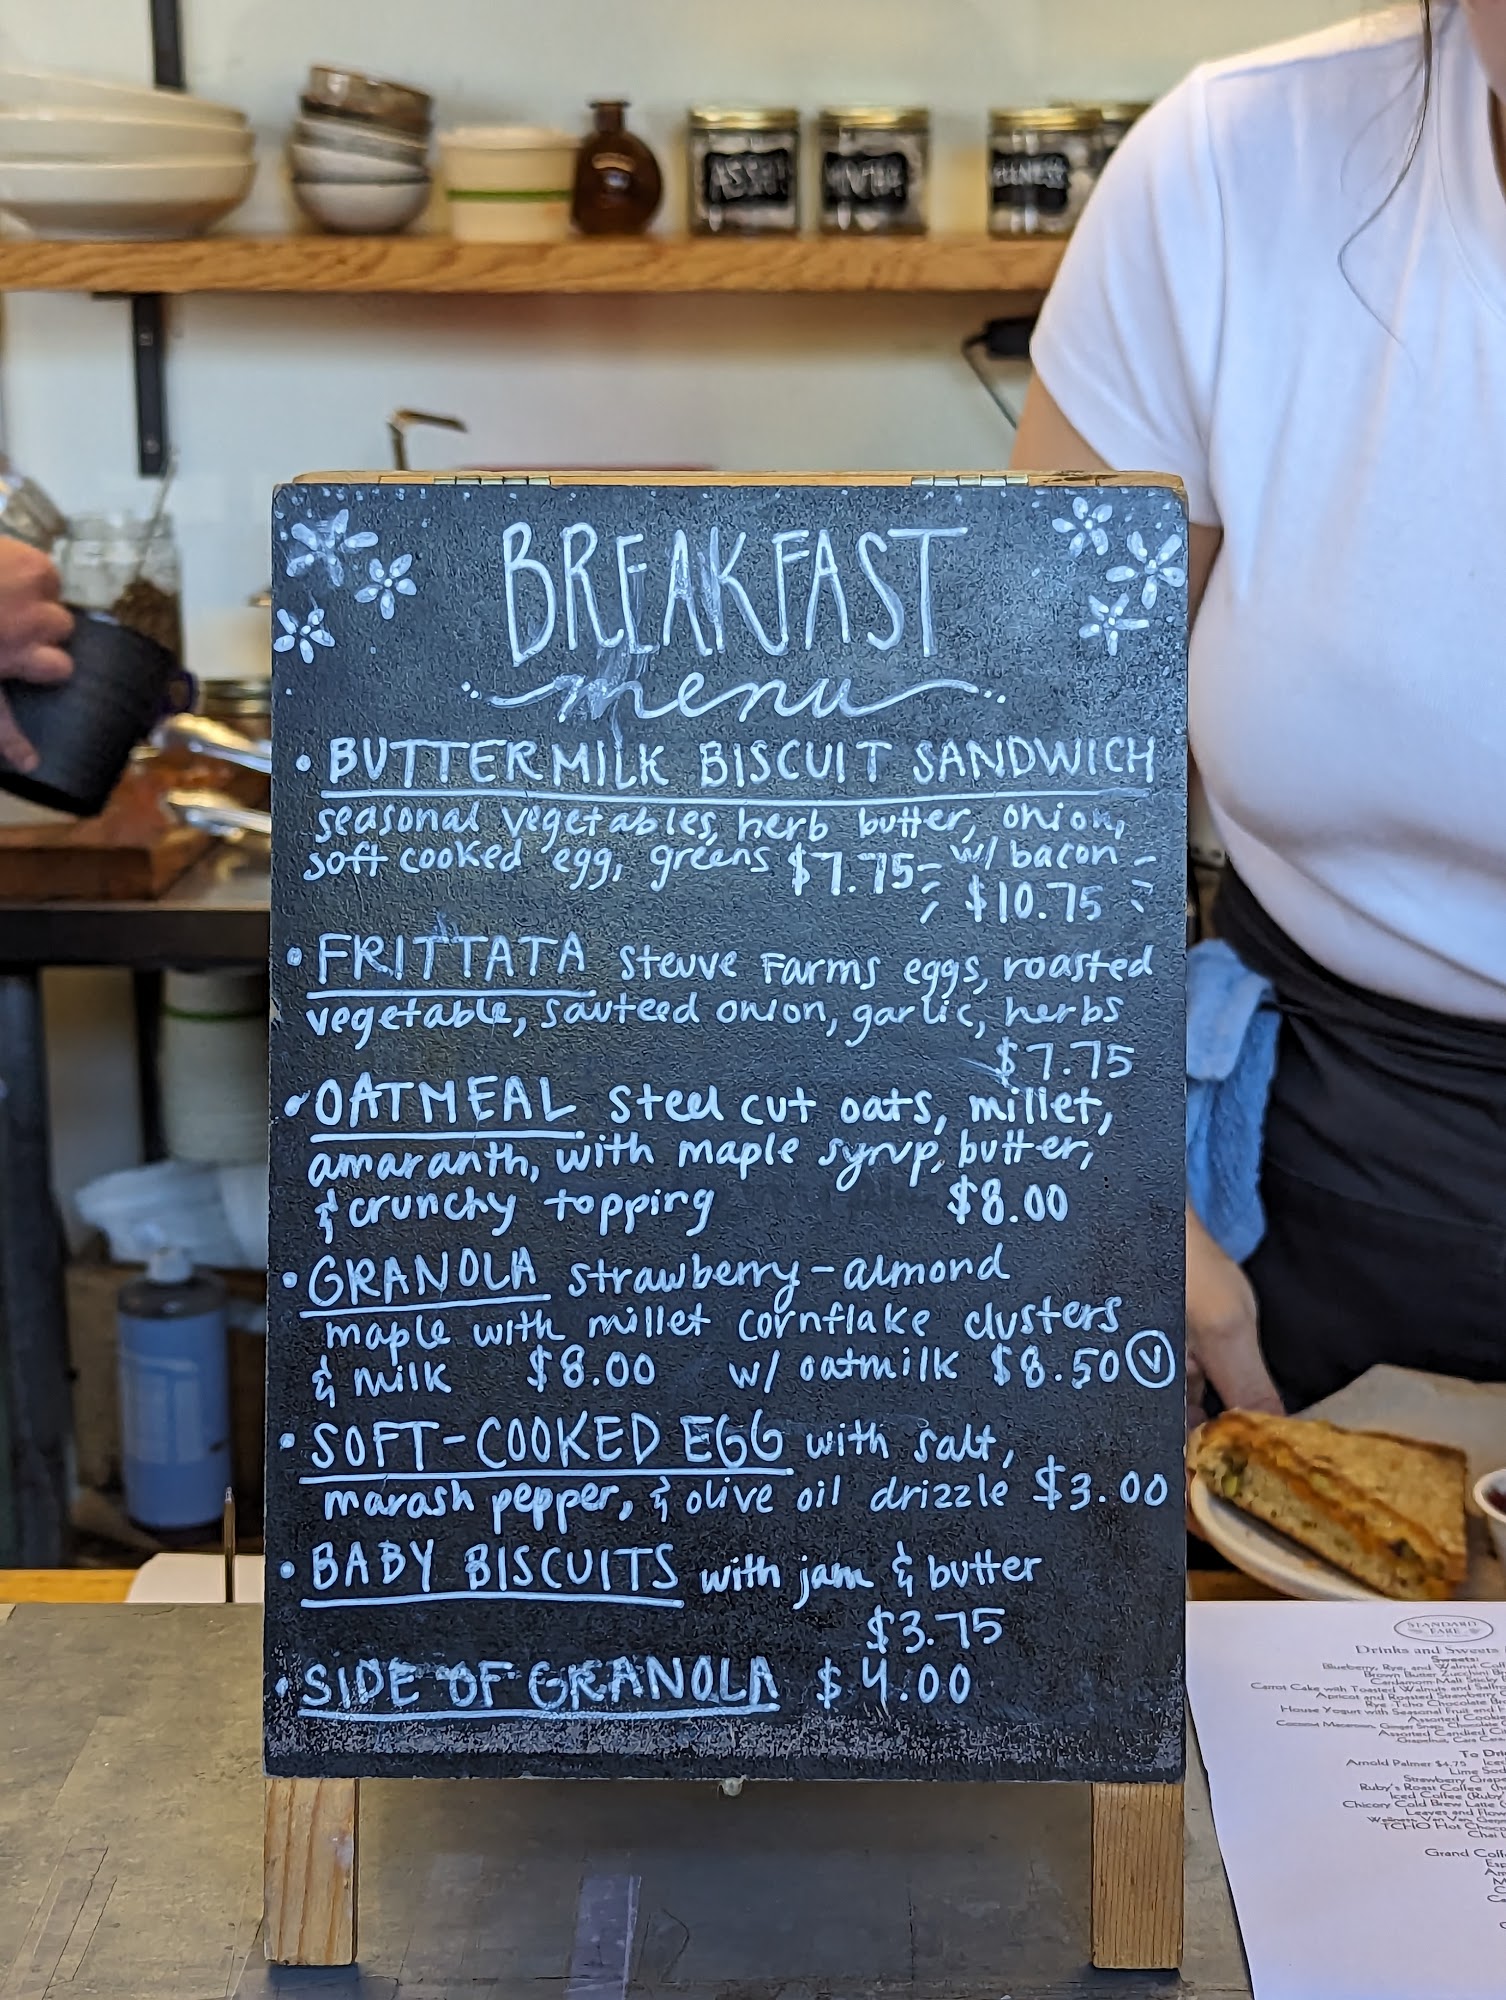 BREAKFAST
menu
• BUTTERMILK BISCUIT SANDWICH
seasonal vegetables, herb butter, onion,
soft cooked egg, greens $7.75 w/ bacon
$10.75
• FRITTATA Steuve Farms eggs, roasted
vegetable, sauteed onion, garlic, herbs
$7.75
• OATMEAL steel cut oats, millet,
amaranth, with maple syrup, butter,
& crunchy topping $8.00
• GRANOLA strawberry-almond
maple with millet cornflake clusters
& milk $8.00 w/ oatmilk $8.50 Ⓥ
• SOFT-COOKED EGG with salt,
marash pepper, & olive oil drizzle $3.00
• BABY BISCUITS with jam & butter
$3.75
• SIDE OF GRANOLA $4.00
STANDARD
FARE
Drinks and Sweets
Sweets:
Blueberry, Rye, and Walnut
Brown Butter Zucchini
Cardamom Malt Sticky
Carrot Cake with Toasted Walnuts and
Apricot and Roasted Strawberry
Rye Tcho Chocolate
House Yogurt with Seasonal Fruit and
Assorted
Coconut Macaroon, Ginger Snap, Chocolate
Assorted Candied
To
Arnold Palmer $4.75
Lime
Strawberry
Ruby's Roast Coffee
Iced Coffee
Chicory Cold Brew Latte
Leaves and
TCHO Hot
Chai
Grand